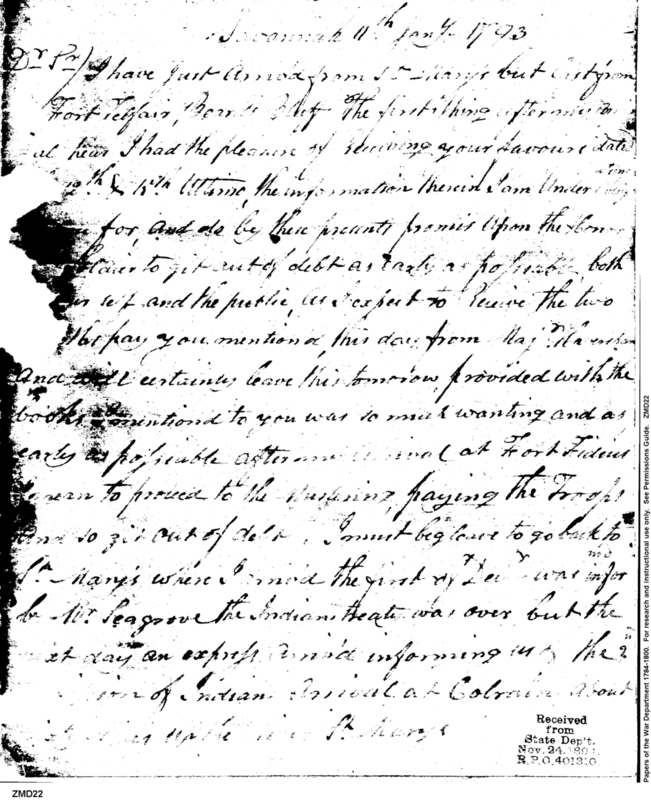 Savannah 11th Jany 1793
Dr Sr/ I have Just Arived from St Marys but last from
Fort Telfair, Beards Bluff The first thing after my
hear I had the pleasure of Receiving your favours dated
19th & 15th Ultimo, the information therein I am Under
for, and do by these presents promis Upon the
to git out of debt as early as possiable, both
self and the public, as I expect to Receive the two
pay you mentiond, this day from Majr
And will certainly leave this tomorow, provided with the
books I mentiond to you was so much wanting and as
early as possiable after my Arrival at Fort Fidius
I mean to proceed to the Mustering, paying the Troops
And so git out of debt, I must beg leave to go back to
St Marys where I arived the first of Decr was informd
by Mr Seagrove the Indian treaty was over but the
next day an express Arived informing us of the 2nd
of Indians Arrival at Colrain About
up the St Marys
Received
from
State Dep't.
Nov. 24.
R.P.O.401310
ZMD22
Papers of the War Department 1784-1800. For research and instructional use only. See Permissions Guide. ZMD22